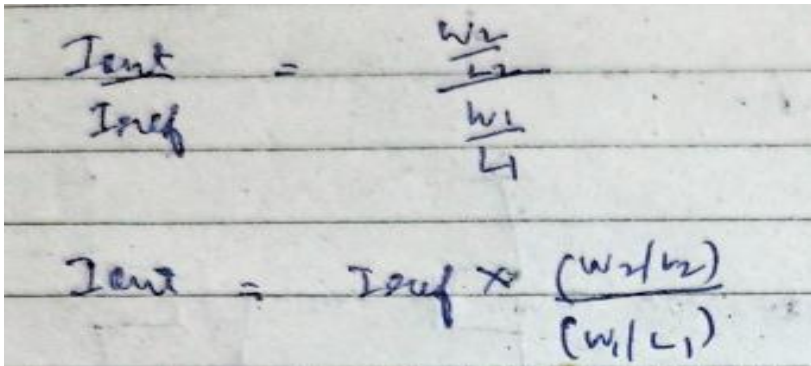 Iout / Iref = (W2/L2) / (W1/L1)
Iout = Iref × (W2/L2) / (W1/L1)